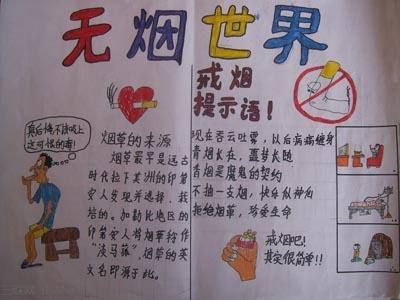 无烟世界
戒烟
提示语！
真后悔不该吸上
这可恨的毒！
烟草的来源
烟草最早是远古
时代拉丁美洲的印第
安人发现并选择、栽
培的。加勒比地区的印
第安人将烟草称作
“淡马菰”，烟草的英
文名即源于此。
现在吞云吐雾，以后病痛缠身
青烟长在，噩梦长随
青烟是魔鬼的契约
不抽一支烟，快乐似神仙
拒绝烟草，珍爱生命
戒烟吧！
其实很简单！！